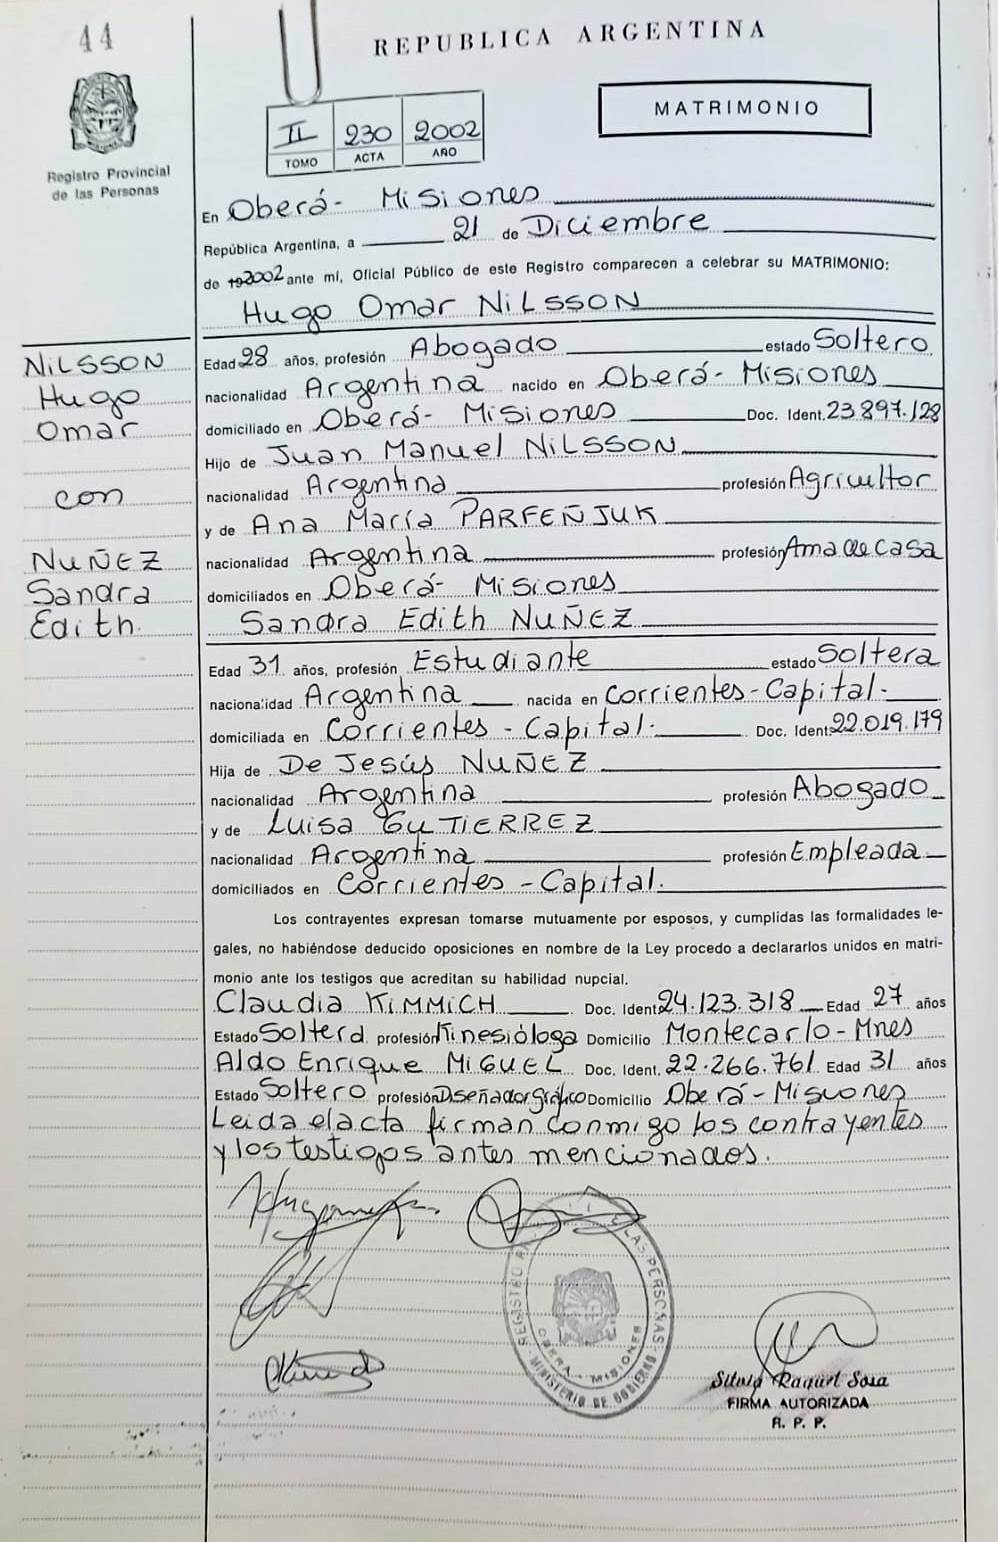 44
REPUBLICA ARGENTINA
MATRIMONIO
II 230 2002
TOMO ACTA AÑO
Registro Provincial
de las Personas
En Oberá- Misiones
República Argentina, a 21 de Diciembre
de 192002 ante mí, Oficial Público de este Registro comparecen a celebrar su MATRIMONIO:
Hugo Omar NiLSSON
NiLSSON
Hugo
Omar
con
NUÑEZ
Sandra
Edith.
Edad 28 años, profesión Abogado estado Soltero
nacionalidad Argentina nacido en Oberá- Misiones
domiciliado en Oberá- Misiones Doc. Ident. 23.897.128
Hijo de Juan Manuel NiLSSON
nacionalidad Argentina profesión Agricultor
y de Ana María PARFEÑJUK
nacionalidad Argentina profesión Ama de casa
domiciliados en Oberá- Misiones
Sandra Edith NUÑEZ
Edad 31 años, profesión Estudiante estado Soltera
nacionalidad Argentina nacida en Corrientes-Capital.
domiciliada en Corrientes - Capital. Doc. Ident. 22.019.179
Hija de De Jesús NUÑEZ
nacionalidad Argentina profesión Abogado
y de Luisa GUTIERREZ
nacionalidad Argentina profesión Empleada
domiciliados en Corrientes - Capital.
Los contrayentes expresan tomarse mutuamente por esposos, y cumplidas las formalidades le-
gales, no habiéndose deducido oposiciones en nombre de la Ley procedo a declararlos unidos en matri-
monio ante los testigos que acreditan su habilidad nupcial.
Claudia KiMMiCH Doc. Ident. 24.123.318 Edad 27 años
Estado Soltera profesión Kinesióloga Domicilio Montecarlo-Mnes
Aldo Enrique MiGUEL Doc. Ident. 22.266.761 Edad 31 años
Estado Soltero profesión Diseñador gráfico Domicilio Oberá-Misiones
Leida el acta firman conmigo los contrayentes
y los testigos antes mencionados.
LAS PERSONAS
OBERA - MISIONES
MINISTERIO DE GOBIERNO
Silvia Raquel Sosa
FIRMA AUTORIZADA
R. P. P.